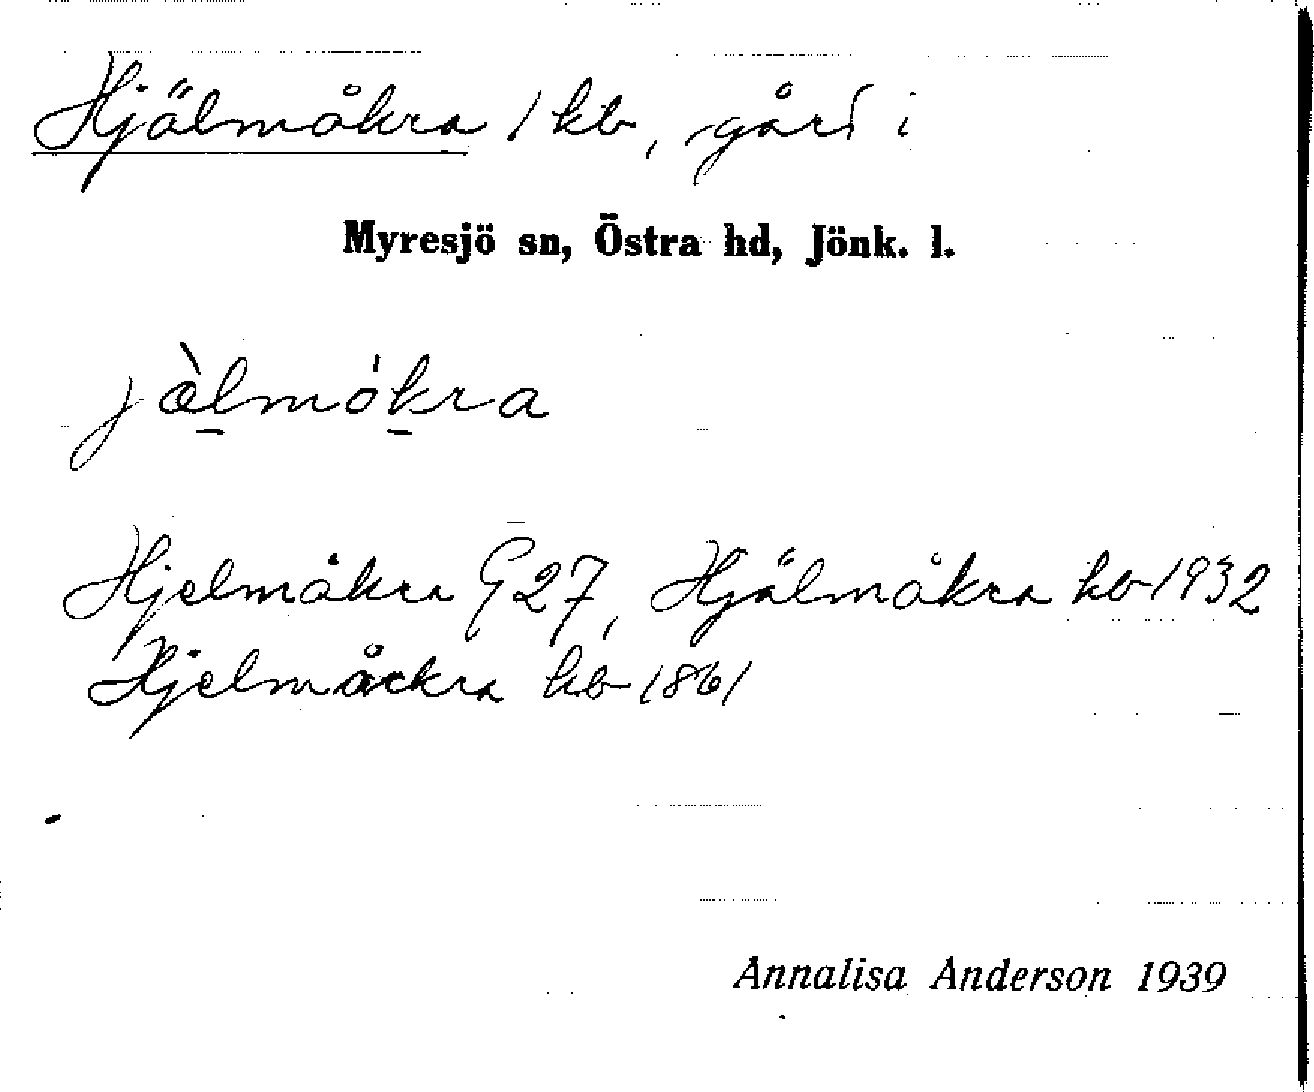 Hjälmåkra / kb, gård i
Myresjö sn, Östra hd, Jönk. l.
jàlmókra
Hjelmåkra G 27, Hjälmåkra kb 1932
Hjelmåckra kb 1861
Annalisa Anderson 1939